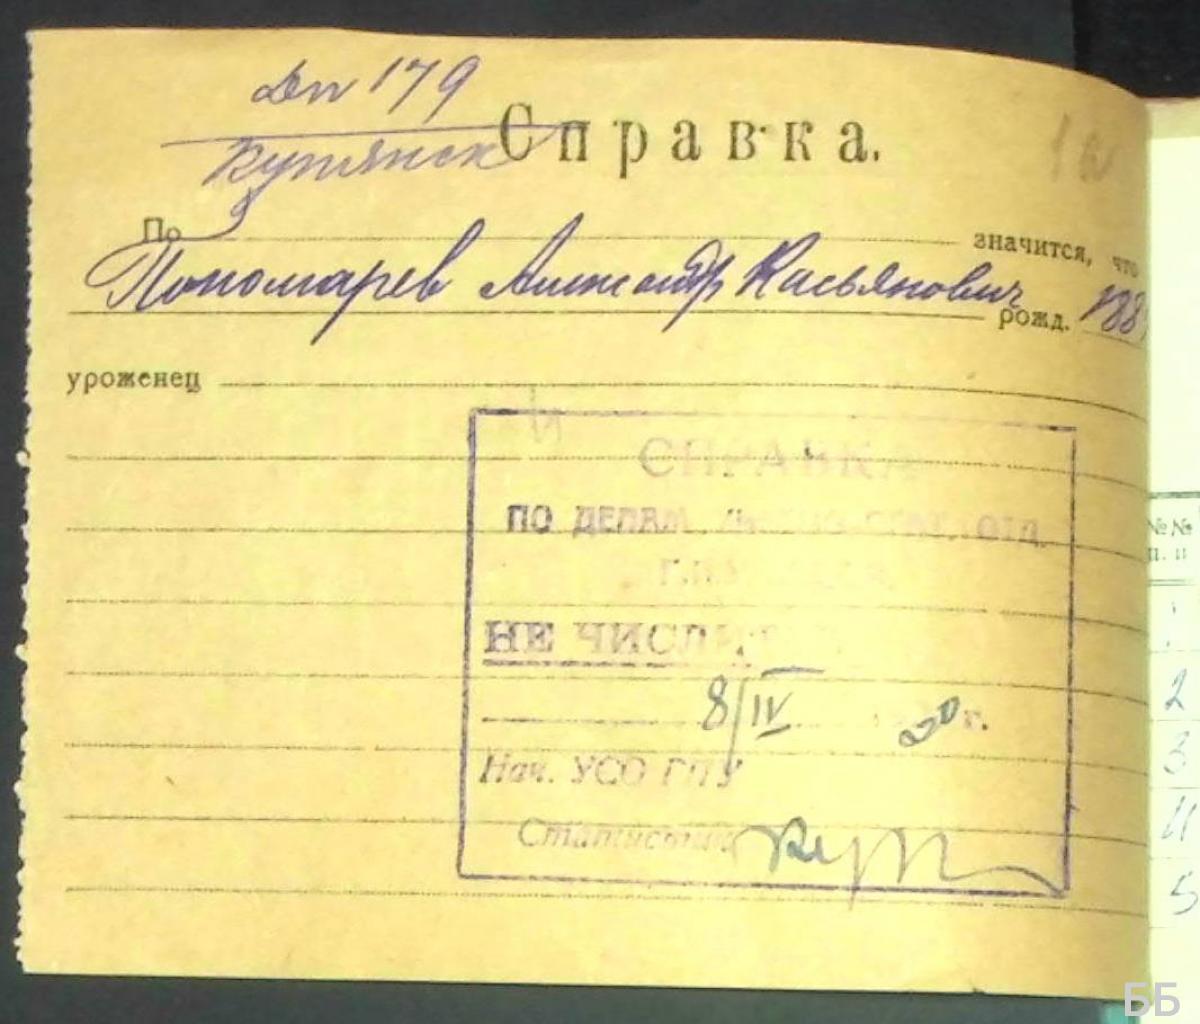 Дп 179
Купянск
Справка.
1а
По значится, что
Пономарев Александр Касьянович рожд. 188
уроженец
СПРАВКА
ПО ДЕЛАМ ОТД.
НЕ ЧИСЛИТСЯ
8/IV 30 г.
Нач. УСО ГПУ
Статистик
№№
п. п
2
3
11
5
ББ